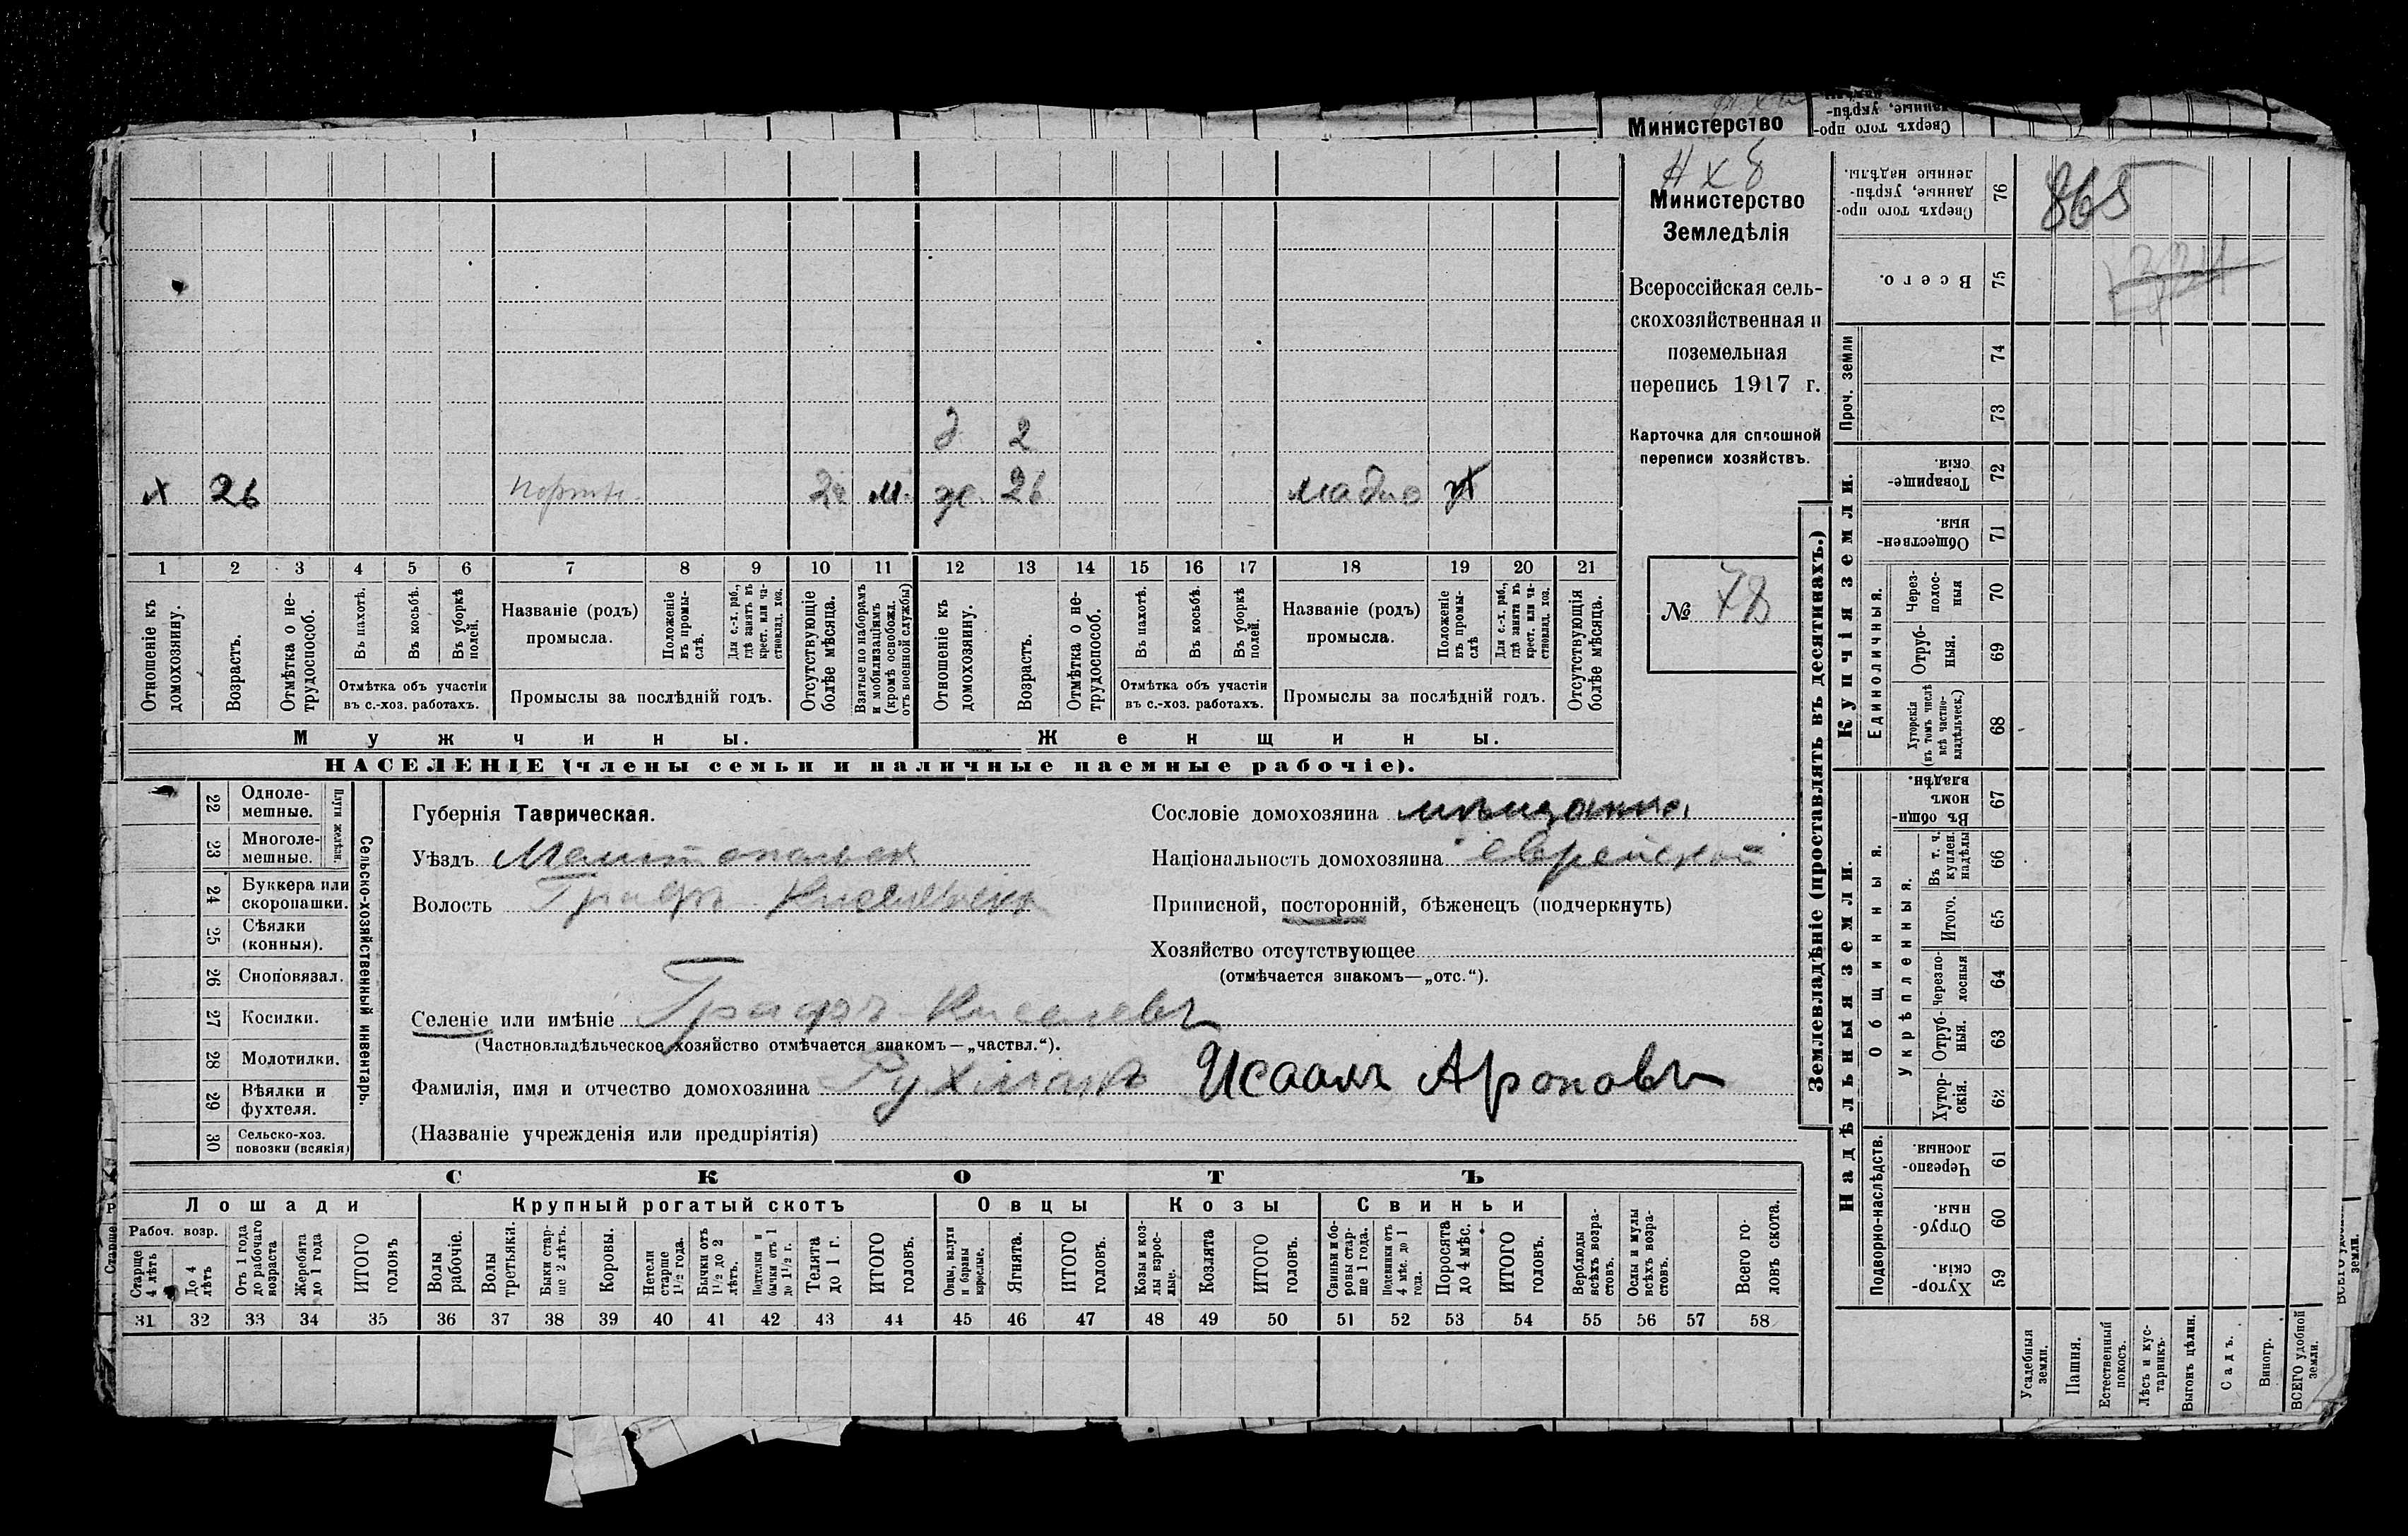 Министерство
Сверхъ того про-
данные, укрѣп-
Н х 8
Министерство
Земледѣлія
Всероссійская сель-
скохозяйственная и
поземельная
перепись 1917 г.
Карточка для сплошной
переписи хозяйствъ.
№ 78
д 2
х 26 портн. 2 м. ж. 26 х
1 2 3 4 5 6 7 8 9 10 11 12 13 14 15 16 17 18 19 20 21
Отношеніе къ домохозяину.
Возрастъ.
Отмѣтка о не-трудоспособ.
Въ пахотѣ.
Въ косьбѣ.
Въ уборкѣ полей.
Отмѣтка объ участіи въ с.-хоз. работахъ.
Названіе (родъ) промысла.
Положеніе въ промы-слѣ.
Для с.-х. раб., гдѣ занятъ въ крест. или ча-стновлад. хоз.
Промыслы за послѣдній годъ.
Отсутствующіе болѣе мѣсяца.
Взятые по наборамъ и мобилизаціямъ (кромѣ освобожд. отъ военной службы)
Отношеніе къ домохозяину.
Возрастъ.
Отмѣтка о не-трудоспособ.
Въ пахотѣ.
Въ косьбѣ.
Въ уборкѣ полей.
Отмѣтка объ участіи въ с.-хоз. работахъ.
Названіе (родъ) промысла.
Положеніе въ промы-слѣ
Для с.-х. раб., гдѣ занята въ крест. или ча-стновлад. хоз.
Промыслы за послѣдній годъ.
Отсутствующія болѣе мѣсяца.
Мужчины.
Женщины.
НАСЕЛЕНІЕ (члены семьи и наличные наемные рабочіе).
22 Одноле-мешные.
23 Многоле-мешные.
Плуги желѣзн.
24 Буккера или скоропашки.
25 Сѣялки (конныя).
26 Сноповязал.
27 Косилки.
28 Молотилки.
29 Вѣялки и фухтеля.
30 Сельско-хоз. повозки (всякія)
Сельско-хозяйственный инвентарь.
Губернія Таврическая.
Уѣздъ Мелитопольск
Волость Графъ Киселевск
Селеніе или имѣніе Графъ-Киселевъ
(Частновладѣльческое хозяйство отмѣчается знакомъ—„частвл.“).
Фамилія, имя и отчество домохозяина Рухманъ Исаакъ Ароновъ
(Названіе учрежденія или предпріятія)
Сословіе домохозяина мѣщанин
Національность домохозяина еврейской
Приписной, посторонній, бѣженецъ (подчеркнуть)
Хозяйство отсутствующее
(отмѣчается знакомъ—„отс.“).
СКОТЪ
Лошади
Крупный рогатый скотъ
Овцы
Козы
Свиньи
Рабоч. возр.
Старше 4 лѣтъ
До 4 лѣтъ
Отъ 1 года до рабочаго возраста
Жеребята до 1 года
ИТОГО головъ
Волы рабочіе.
Волы третьяки.
Быки стар-ше 2 лѣтъ.
Коровы.
Нетели старше 1½ года.
Бычки отъ 1½ до 2 лѣтъ.
Подтелки и бычки отъ 1 до 1½ г.
Телята до 1 г.
ИТОГО головъ.
Овцы, валухи и бараны взрослые.
Ягнята.
ИТОГО головъ.
Козы и коз-лы взрос-лые.
Козлята
ИТОГО головъ.
Свиньи и бо-ровы стар-ше 1 года.
Подсвинки отъ 4 мѣс. до 1 года.
Поросята до 4 мѣс.
ИТОГО головъ.
Верблюды всѣхъ возра-стовъ.
Ослы и мулы всѣхъ возра-стовъ.
Всего го-ловъ скота.
31 32 33 34 35 36 37 38 39 40 41 42 43 44 45 46 47 48 49 50 51 52 53 54 55 56 57 58
Землевладѣніе (проставлять въ десятинахъ.)
Купчія земли.
Надѣльныя земли.
Проч. земли
Единоличныя.
Общинныя.
Укрѣпленныя.
Подворно-наслѣдств.
Сверхъ того про-данные, укрѣп-ленные надѣлы. 76
865
Всего. 75
74
73
Товарище-скія. 72
Обществен-ныя. 71
Через-полос-ныя 70
Отруб-ныя. 69
Хуторскія (въ томъ числѣ всѣ частно-владѣльческ.) 68
Въ общи-номъ владѣн. 67
Въ т. ч. куплен. надѣлы 66
Итого. 65
Черезпо-лосныя 64
Отруб-ныя. 63
Хутор-скія. 62
Черезпо-лосныя. 61
Отруб-ныя. 60
Хутор-скія. 59
Усадебныя земли.
Пашня.
Естественный покосъ.
Лѣсъ и кус-тарникъ.
Выгонъ цѣлин.
Садъ.
Виногр.
ВСЕГО удобной земли.